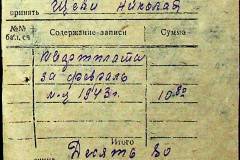 принять Щеки Николая
№№ бал. сч. Содержание записи Сумма
Квартплата
за февраль
м-ц 1943 г. 10 82
Итого
Десять